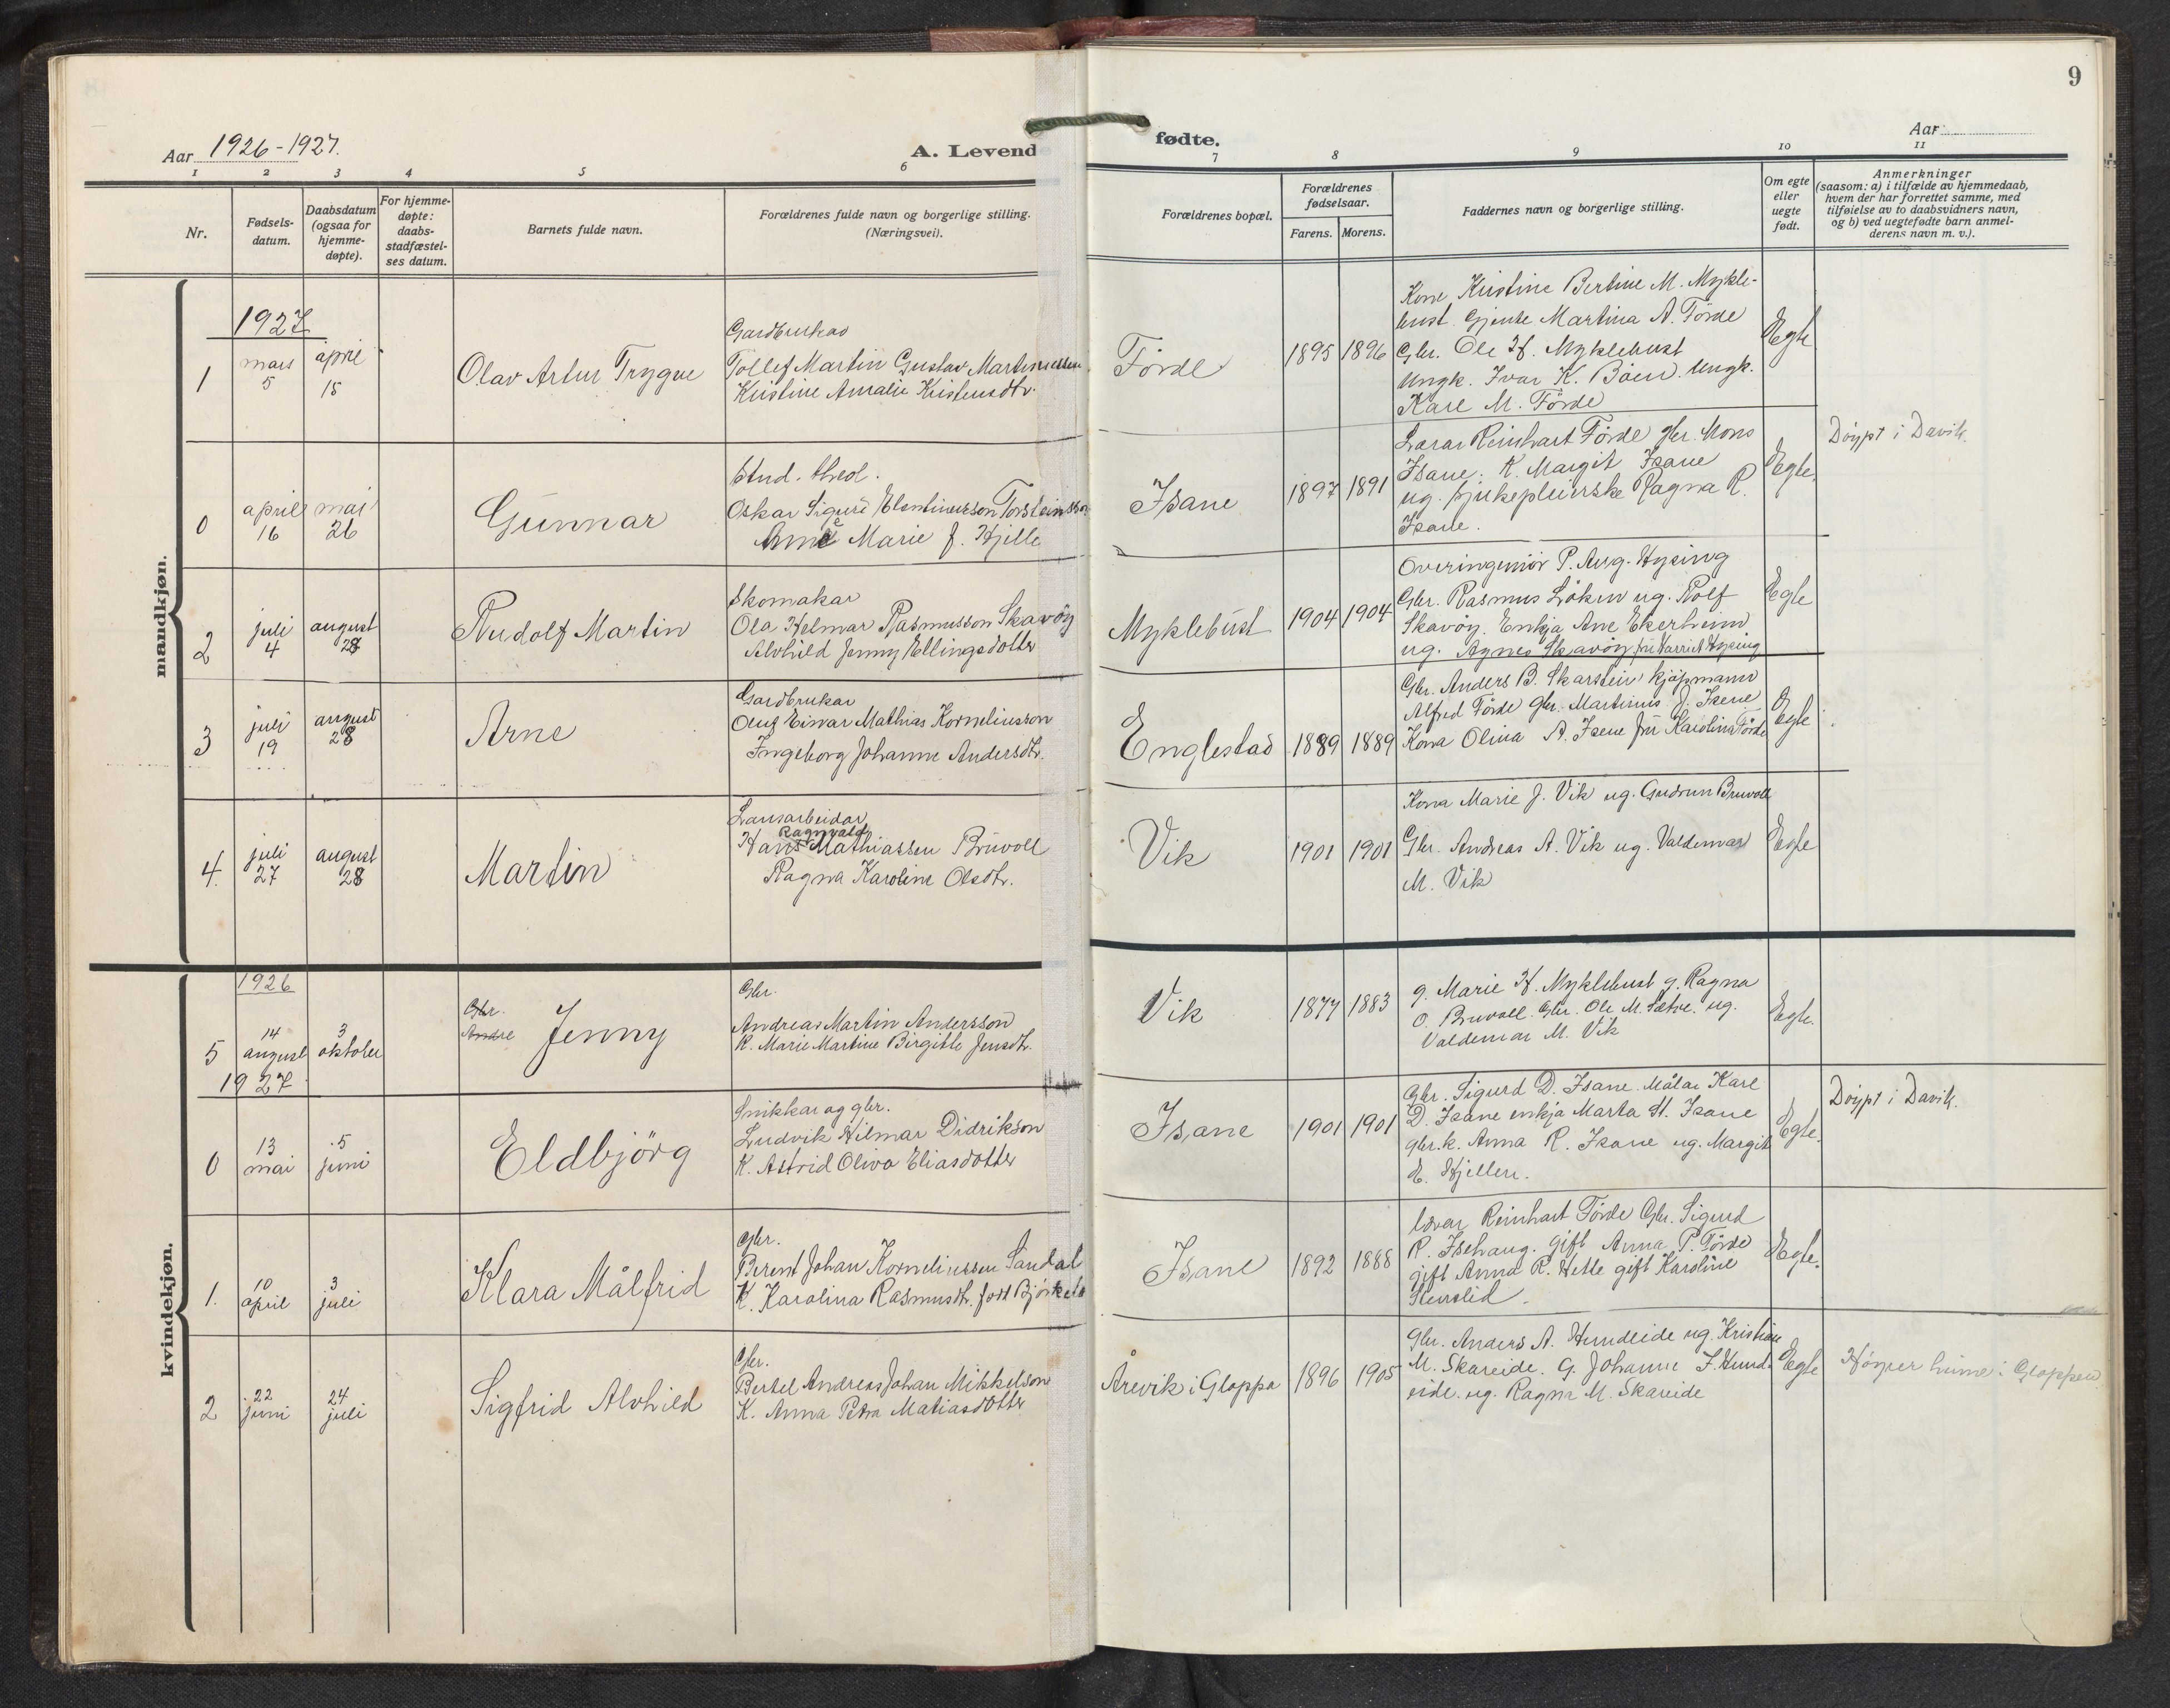 9
Aar 1926-1927.
A. Levende
fødte.
Aar
1
2
3
4
5
6
7
8
9
10
11
Nr.
Fødsels-
datum.
Daabsdatum
(ogsaa for
hjemme-
døpte).
For hjemme-
døpte:
daabs-
stadfæstel-
ses datum.
Barnets fulde navn.
Forældrenes fulde navn og borgerlige stilling.
(Næringsvei).
Forældrenes bopæl.
Forældrenes
fødselsaar.
Farens.
Morens.
Faddernes navn og borgerlige stilling.
Om egte
eller
uegte
født.
Anmerkninger
(saasom: a) i tilfælde av hjemmedaab,
hvem der har forrettet samme, med
tilføielse av to daabsvidners navn,
og b) ved uegtefødte barn anmel-
derens navn m. v.).
mandkjøn.
1927
1
mars
5
april
18
Olav Artur Trygve
Gardbrukar
Tollef Martin Gustav Martinussen
Kristine Amalie Kristensdtr.
Förde
1895
1896
Kone Kristine Bertine M. Mykle-
bust Gjente Martina A. Förde
Gbr. Ole H. Myklebust
Ungk. Ivar K. Böen. Ungk.
Kare M. Förde
Egte
0
april
16
mai
26
Gunnar
Stud. theol.
Oskar Sigurd Elentinusson Torsteinsson
Anne Marie J. Hjelle
Isane
1897
1891
Lærar Reinhart Förde gbr. Mons
Isane. K. Margit Isane
ug. sjukepleierske Ragna R.
Isane.
Egte.
Döypt i Davik.
2
juli
4
august
28
Rudolf Martin
Skomakar
Ola Helmar Rasmusson Skavöy
Alvhild Jenny Ellingsdotter
Myklebust
1904
1904
Overingeniör P. Aug. Hysing
Gbr. Rasmus Löken ug. Rolf
Skavöy. Enkja Ane Ekerheim
ug. Agnes Skavöy fru Harriet Hysing
Egte
3
juli
19
august
28
Arne
Gardbrukar
Oluf Einar Mathias Korneliusson
Ingeborg Johanne Andersdtr.
Englestad
1889
1889
Gbr. Anders B. Skarstein kjöpmann
Alfred Förde Gbr. Martinus J. Isene
Kona Olina A. Isene fru Karolina Förde
Egte
4.
juli
27
august
28
Martin
Lausarbeidar
Ragnvald
Hans Mathiassen Bruvoll
Ragna Karoline Olsdtr.
Vik
1901
1901
Kona Marie J. Vik ug. Gudrun Bruvoll
Gbr. Andreas A. Vik ug. Valdemar
M. Vik
Egte
kvindekjøn.
1926
5
14
august
3
oktober
Gbr.
Andre
Jenny
Gbr.
Andreas Martin Andersson
K. Marie Martine Birgitte Jensdtr.
Vik
1877
1883
g. Marie H. Myklebust g. Ragna
O. Bruvoll. Gbr. Ole M. Sætre. ug.
Valdemar M. Vik
Egte.
1927
0
13
mai
5
juni
Eldbjörg
Snikkar og gbr.
Ludvik Hilmar Didrikson
K. Astrid Oliva Eliasdotter
Isane
1901
1901
Gbr. Sigurd D. Isane. Målar Kare
D. Isane enkja Marta St. Isane
Gbr.k. Anna R. Isane ug. Margit
E. Hjellen.
Egte.
Döypt i Davik.
1.
10
april
3
juli
Klara Målfrid
Gbr.
Berent Johan Korneliussen Sandal
K. Karolina Rasmusdtr. födt
Isane
1892
1888
lærar Reinhart Förde Gbr. Sigurd
R. Isehaug. Gift Anna P. Förde
gift Anna R. Hette gift Karoline
Egte.
2
22
juni
24
juli
Sigfrid Alvhild
Gbr.
Bertel Andreas Johan Mikkelson
K. Anna Petra Matiasdotter
Årevik i Gloppa
1896
1905
Gbr. Anders A. Hundeide ug. Kristian
M. Skareide. G. Johanne F. Hund-
eide. ug. Ragna M. Skareide
Egte
Höyrer heime i Gloppen